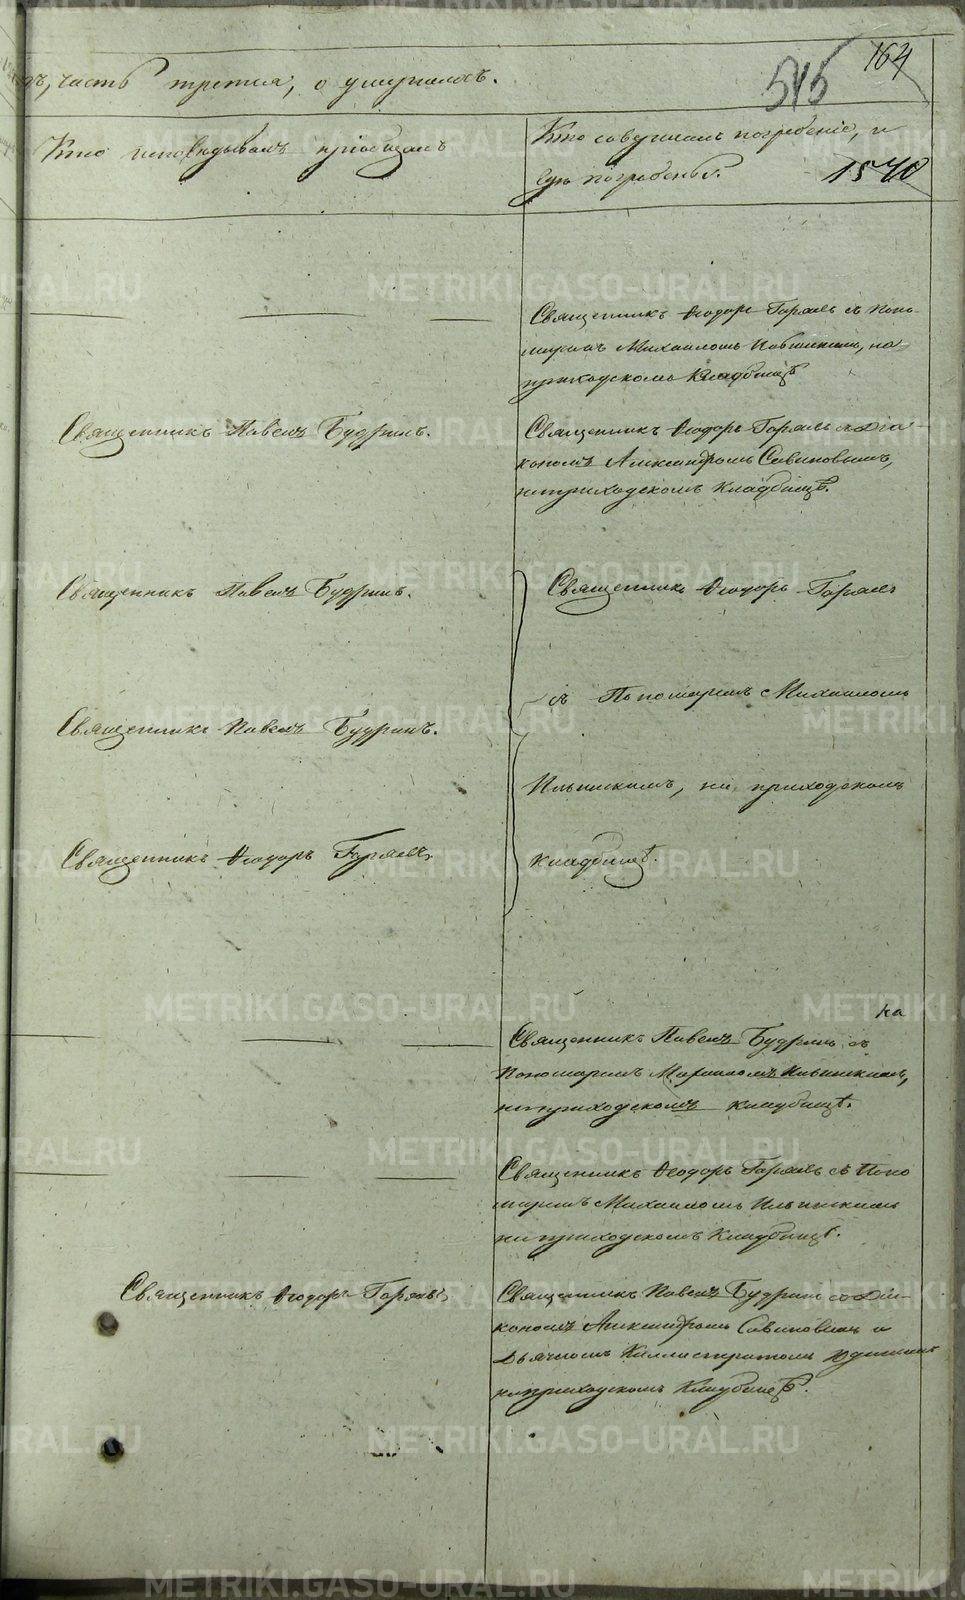 164
515
часть третья, о умершихъ.
Кто исповѣдывалъ пріобщалъ
Кто совершалъ погребеніе, и
гдѣ погребены.
1540
Священникъ Ѳеодоръ Горяевъ съ Поно-
маремъ Михаиломъ Ильинскимъ, на
приходскомъ кладбищѣ
Священникъ Павелъ Будринъ.
Священникъ Ѳеодоръ Горяевъ съ Діа-
кономъ Александромъ Савиновымъ,
на приходскомъ кладбищѣ.
Священникъ Павелъ Будринъ.
Священникъ Ѳеодоръ Горяевъ
съ Пономаремъ Михаиломъ
Священникъ Павелъ Будринъ.
Ильинскимъ, на приходскомъ
Священникъ Ѳеодоръ Горяевъ,
кладбищѣ.
на
Священникъ Павелъ Будринъ съ
Пономаремъ Михаиломъ Ильинскимъ,
на приходскомъ кладбищѣ.
Священникъ Ѳеодоръ Горяевъ съ Поно
маремъ Михаиломъ Ильинскимъ
на приходскомъ Кладбищѣ.
Священникъ Ѳеодоръ Горяевъ,
Священникъ Павелъ Будринъ съ Діа-
кономъ Александромъ Савиновымъ и
Дьячкомъ Каллистратомъ Юдинымъ
на приходскомъ Кладбищѣ.
METRIKI.GASO-URAL.RU